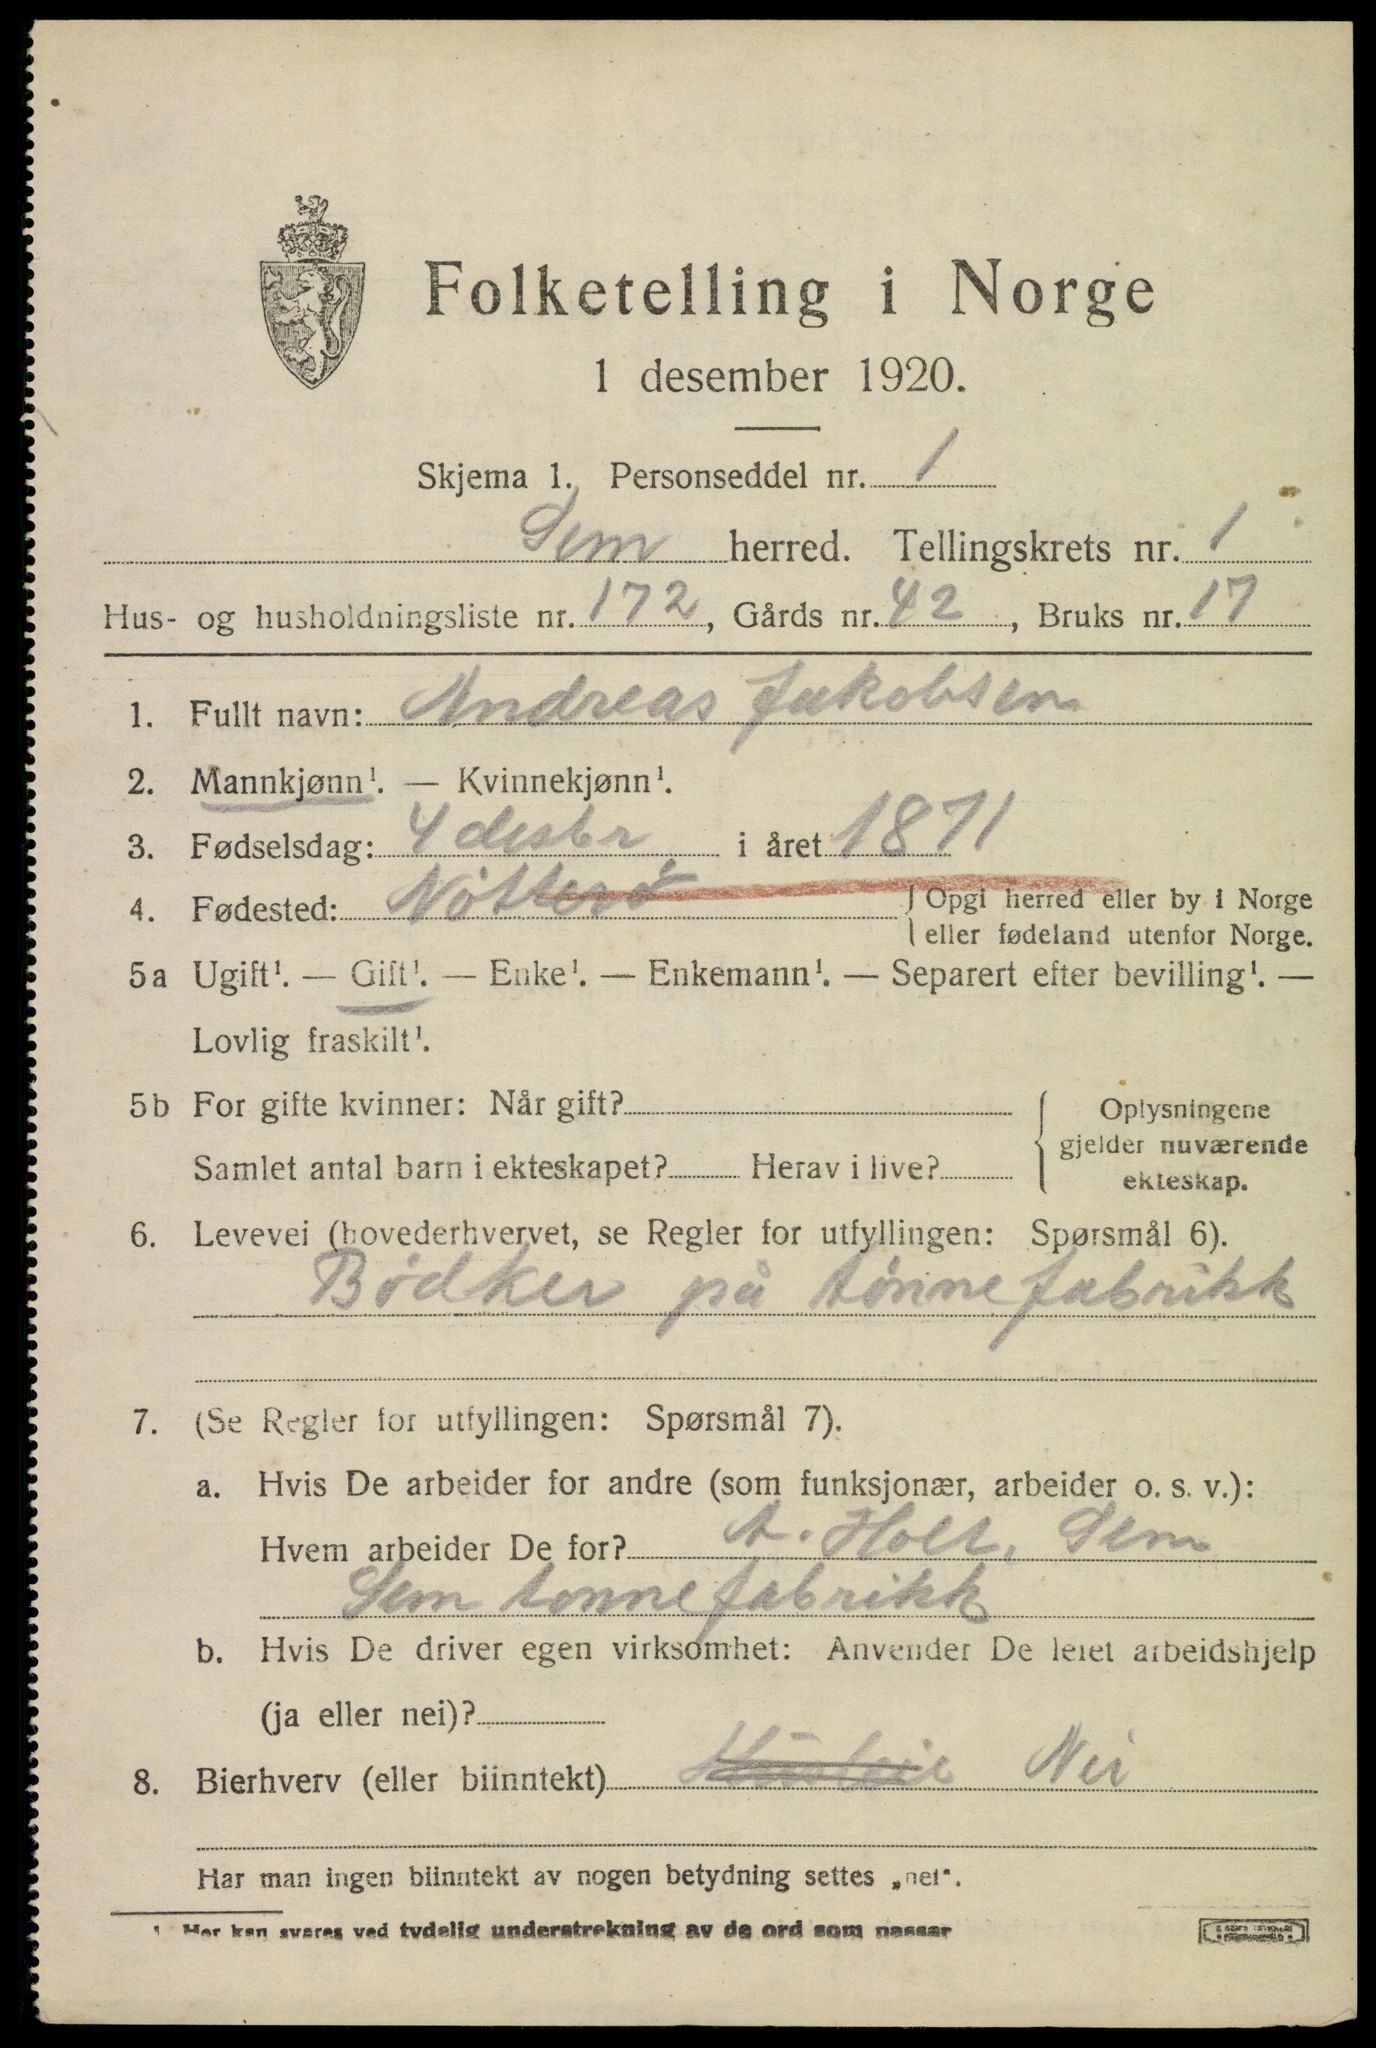 Folketelling i Norge
1 desember 1920.
Skjema 1. Personseddel nr. 1
Sem herred. Tellingskrets nr. 1
Hus- og husholdningsliste nr. 172, Gårds nr. 42, Bruks nr. 17
1. Fullt navn: Andreas Jakobsen
2. Mannkjønn¹. — Kvinnekjønn¹.
3. Fødselsdag: 4 desbr i året 1871
4. Fødested: Nötterö
Opgi herred eller by i Norge
eller fødeland utenfor Norge.
5a Ugift¹. — Gift¹. — Enke¹. — Enkemann¹. — Separert efter bevilling¹. —
Lovlig fraskilt¹.
5b For gifte kvinner: Når gift?
Samlet antal barn i ekteskapet? Herav i live?
Oplysningene
gjelder nuværende
ekteskap.
6. Levevei (hovederhvervet, se Regler for utfyllingen: Spørsmål 6).
Bödker på tönnefabrikk
7. (Se Regler for utfyllingen: Spørsmål 7).
a. Hvis De arbeider for andre (som funksjonær, arbeider o. s. v.):
Hvem arbeider De for? A. Holt, Sem
Sem tonnefabrikk
b. Hvis De driver egen virksomhet: Anvender De leiet arbeidshjelp
(ja eller nei)?
8. Bierhverv (eller biinntekt) Nei
Har man ingen biinntekt av nogen betydning settes „nei“.
¹ Her kan svares ved tydelig understrekning av de ord som passer